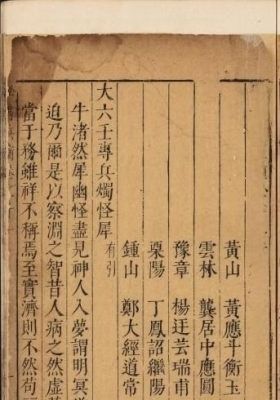 黃山　黃應斗衡玉
雲林　龔居中應圓
豫章　楊廷芸瑞甫
栗陽　丁鳳詔繼陽
鍾山　鄭大經道常
大六壬專兵燭怪犀　有引
牛渚然犀幽怪盡見神人入夢謂明冥
迫乃爾是以察淵之智昔人病之然虛
當于務雖祥不稱焉至實濟則不然苟